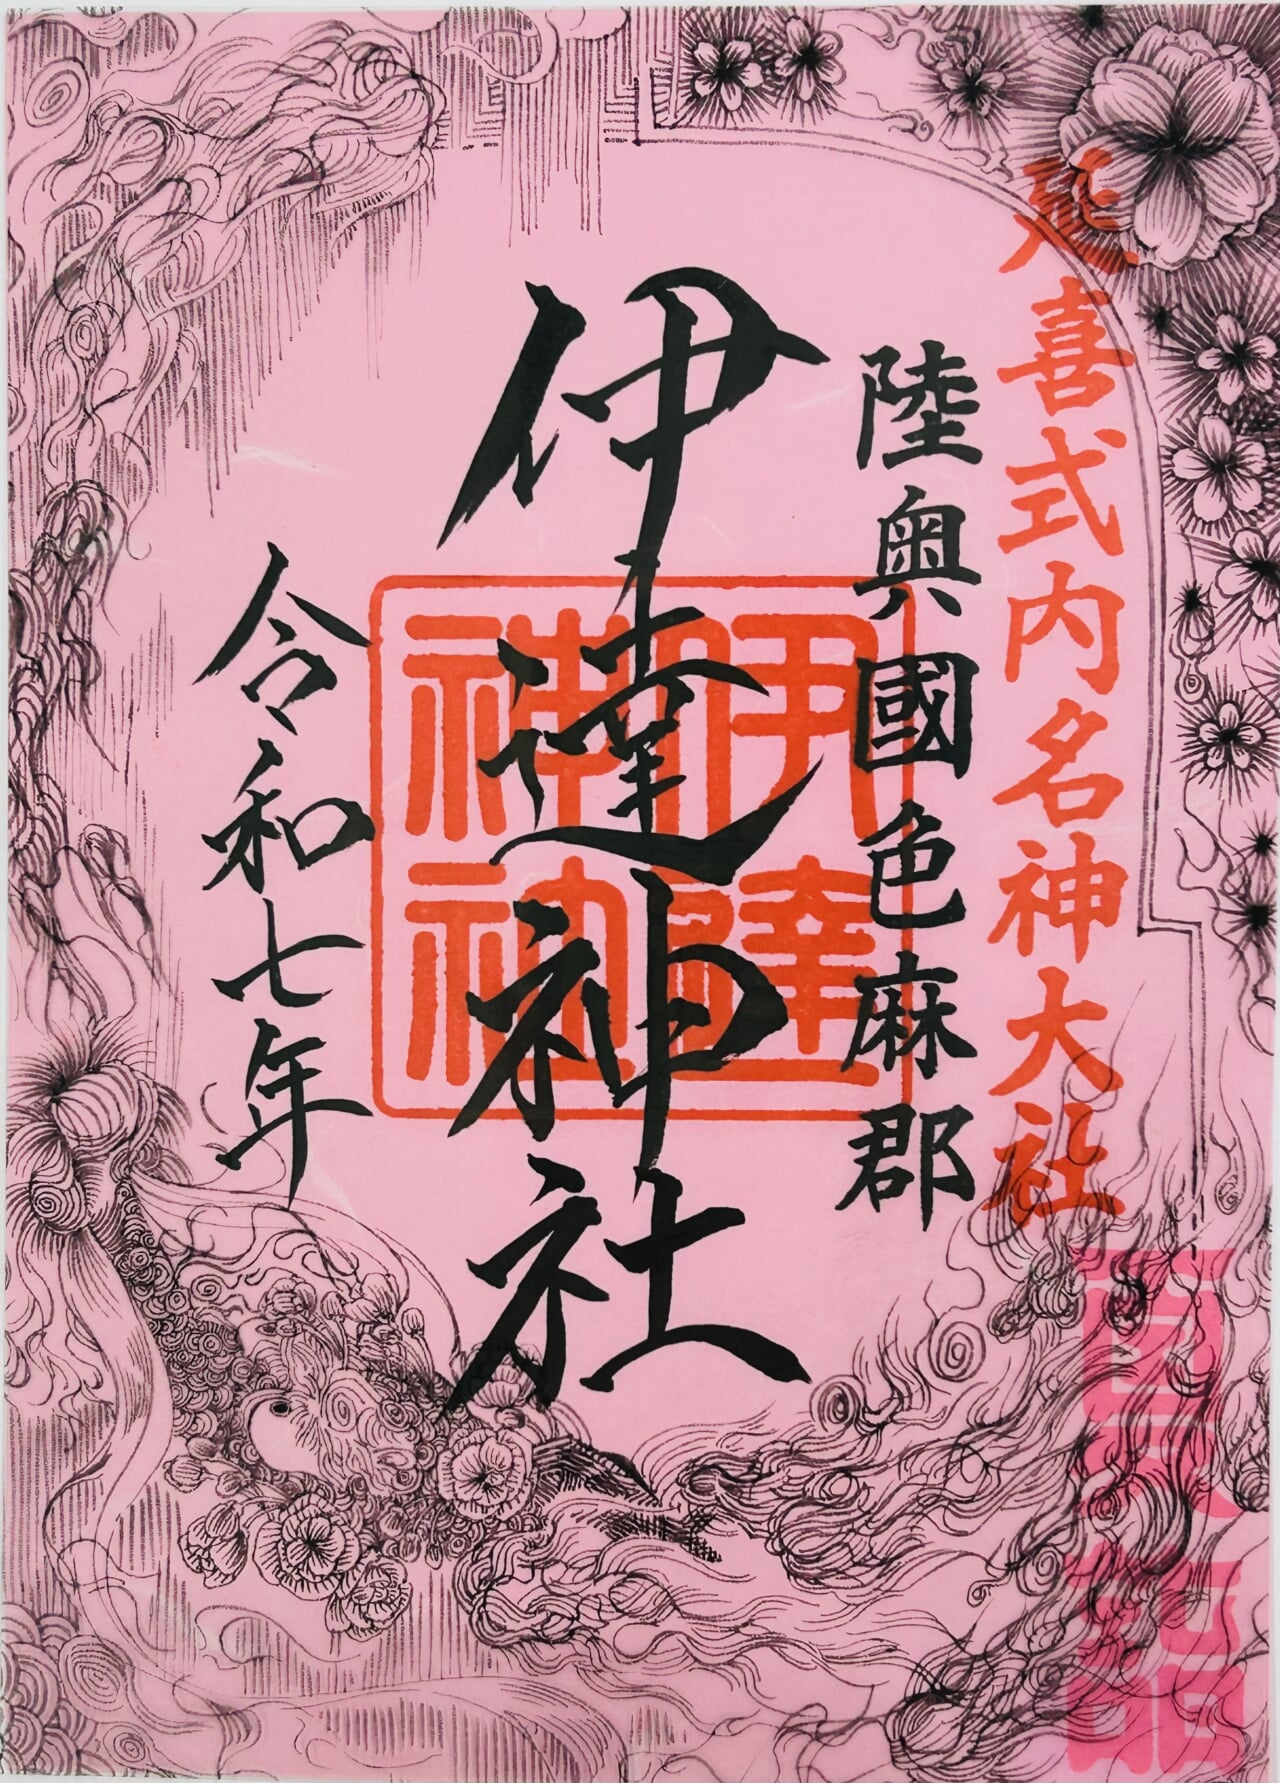 延喜式内名神大社
陸奥國色麻郡
伊達神社
伊達
神社
令和七年